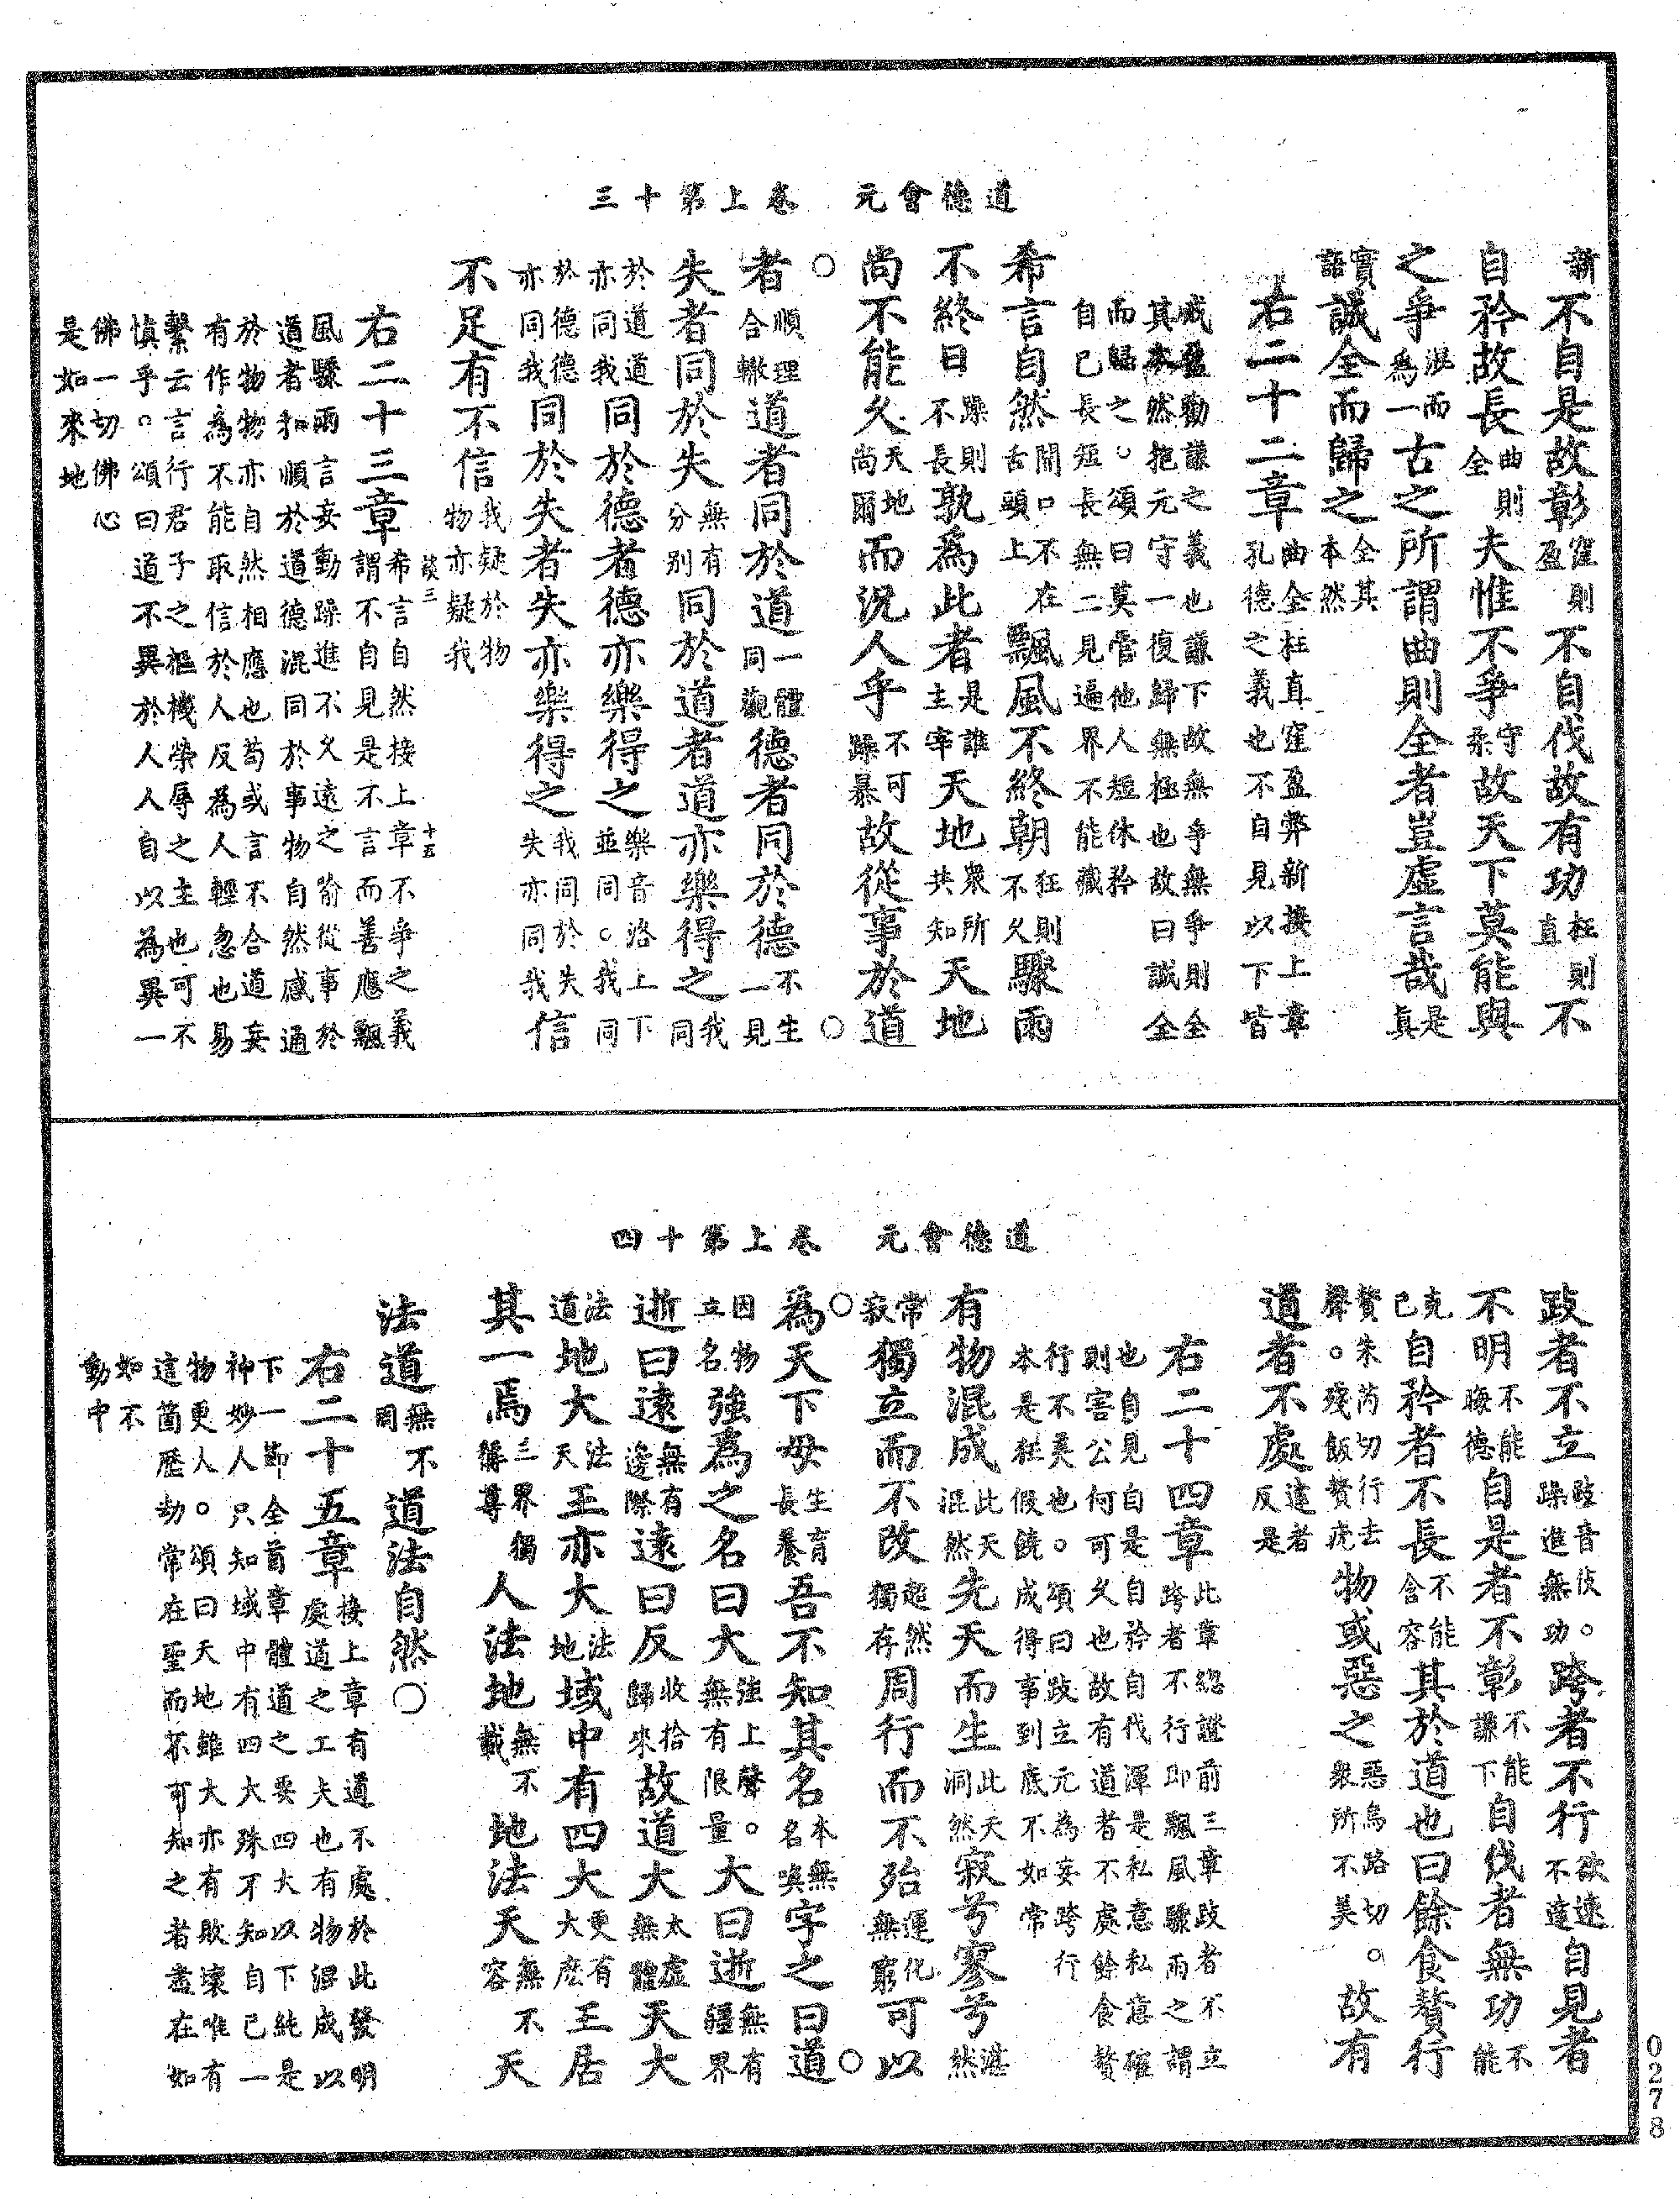 道德會元　卷上第十三
新不自是故彰窪則盈不自伐故有功枉則直不
自矜故長曲則全夫惟不爭守柔故天下莫能與
之爭混而為一古之所謂曲則全者豈虛言哉是真
實語誠全而歸之全其本然
右二十二章曲全枉直窪盈弊新接上章孔德之義也不自見以下皆
戒盈勸謙之義也謙下故無爭無爭則全
其本然抱元守一復歸無極也故曰誠全
而歸之。頌曰莫管他人短休矜
自己長短長無二見遍界不能藏
希言自然開口不在舌頭上飄風不終朝狂則不久驟雨
不終日躁則不長孰為此者是誰主宰天地眾所共知天地
尚不能久天地尚爾而況人乎不可躁暴故從事於道
○者順理合轍道者同於道一體同觀德者同於德不生一見○
失者同於失無有分別同於道者道亦樂得之我同
於道道亦同我同於德者德亦樂得之樂音洛上下並同。我同
於德德亦同我同於失者失亦樂得之我同於失失亦同我信
不足有不信我疑於物物亦疑我
右二十三章希言自然接上章不爭之義謂不自見是不言而善應飄
風驟雨言妄動躁進不久遠之喻從事於
道者和順於道德混同於事物自然感通
於物物亦自然相應也苟或言不合道妄
有作為不能取信於人反為人輕忽也易
繫云言行君子之樞機榮辱之主也可不
慎乎。頌曰道不異於人人自以為異一
佛一切佛心
是如來地
談三
十五
道德會元　卷上第十四
跂者不立跂音企。躁進無功跨者不行欲速不達自見者
不明不能晦德自是者不彰不能謙下自伐者無功不能
克己自矜者不長不能含容其於道也曰餘食贅行
贅朱芮切行去聲。殘飯贅疣物或惡之惡烏路切。眾所不美故有
道者不處違者反是
右二十四章此章總證前三章跂者不立跨者不行即飄風驟雨之謂
也自見自是自矜自伐渾是私意私意確
則害公何可久也故有道者不處餘食贅
行不美也。頌曰跂立元為妄跨行
本是狂假饒成得事到底不如常
有物混成此天混然先天而生此天洞然寂兮寥兮湛然
常寂獨立而不改超然獨存周行而不殆運化無窮可以
○為天下母生育長養吾不知其名本無名喚字之曰道○
因物立名強為之名曰大強上聲。無有限量大曰逝無有疆界
逝曰遠無有邊際遠曰反收拾歸來故道大太虛無體天大
法道地大法天王亦大法地域中有四大更有大麽王居
其一焉三界獨稱尊人法地無不載地法天無不容天
法道無不周道法自然○
右二十五章接上章有道不處於此發明處道之工夫也有物混成以
下一節全首章體道之妄四大以下純是
神妙人只知域中有四大殊不知自己一
物更人。頌曰天地雖大亦有敗壞唯有
這箇歷劫常在聖而不可知之者盡在如
如不
動中
0278